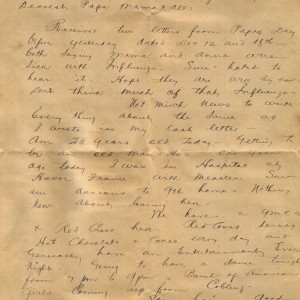 Dearest Papa Mama & all:
Received two letters from Papa Day
before yesterday dated Dec 12 and 18th
both saying Mama and Anna were
sick with Influenza. Sure hated to
hear it. Hope they are well by now
Dont think much of that Influenza
Not Much News to write
Every thing about the same as
I wrote in my last letter
Am 23 years old Today. Getting to
be an old man. Ha one year
ago today I was in Hospital at
Havre France with Measles. Sure
am anxious to get home. Nothing
new about leaving here.
We have a YMCA
& Red Cross here Red Cross serves
Hot Chocolate & Cakes every day and
Generally have an Entertainment Every
Night. Going to have a dance tonight
from 7 pm to 9pm. Bunch of American
Girls coming up from Coblenz.